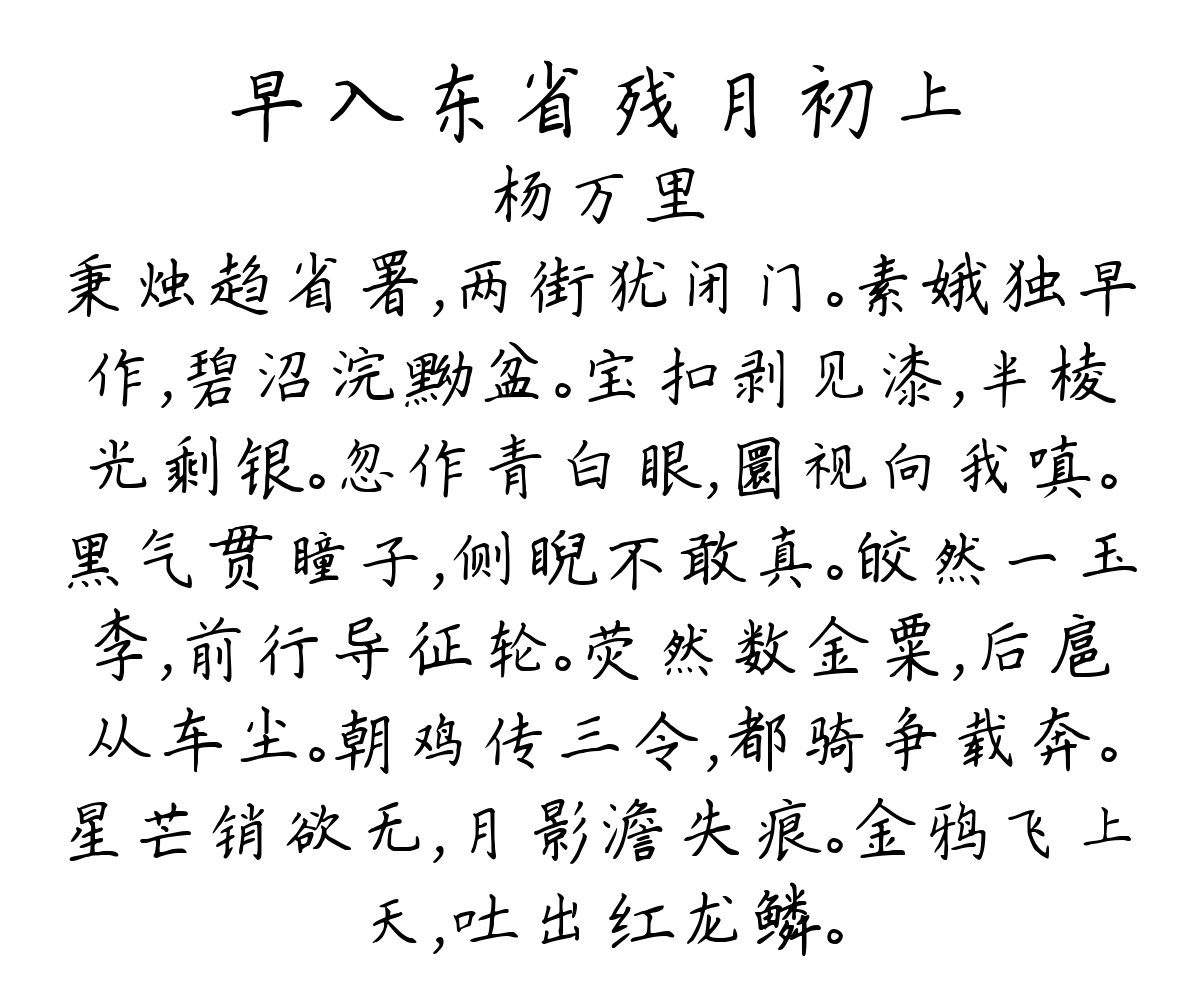 早入东省残月初上
杨万里
秉烛趋省署,两街犹闭门。素娥独早
作,碧沼浣黝盆。宝扣剥见漆,半棱
光剩银。忽作青白眼,圜视向我嗔。
黑气贯瞳子,侧睨不敢真。皎然一玉
李,前行导征轮。荧然数金粟,后扈
从车尘。朝鸡传三令,都骑争载奔。
星芒销欲无,月影澹失痕。金鸦飞上
天,吐出红龙鳞。